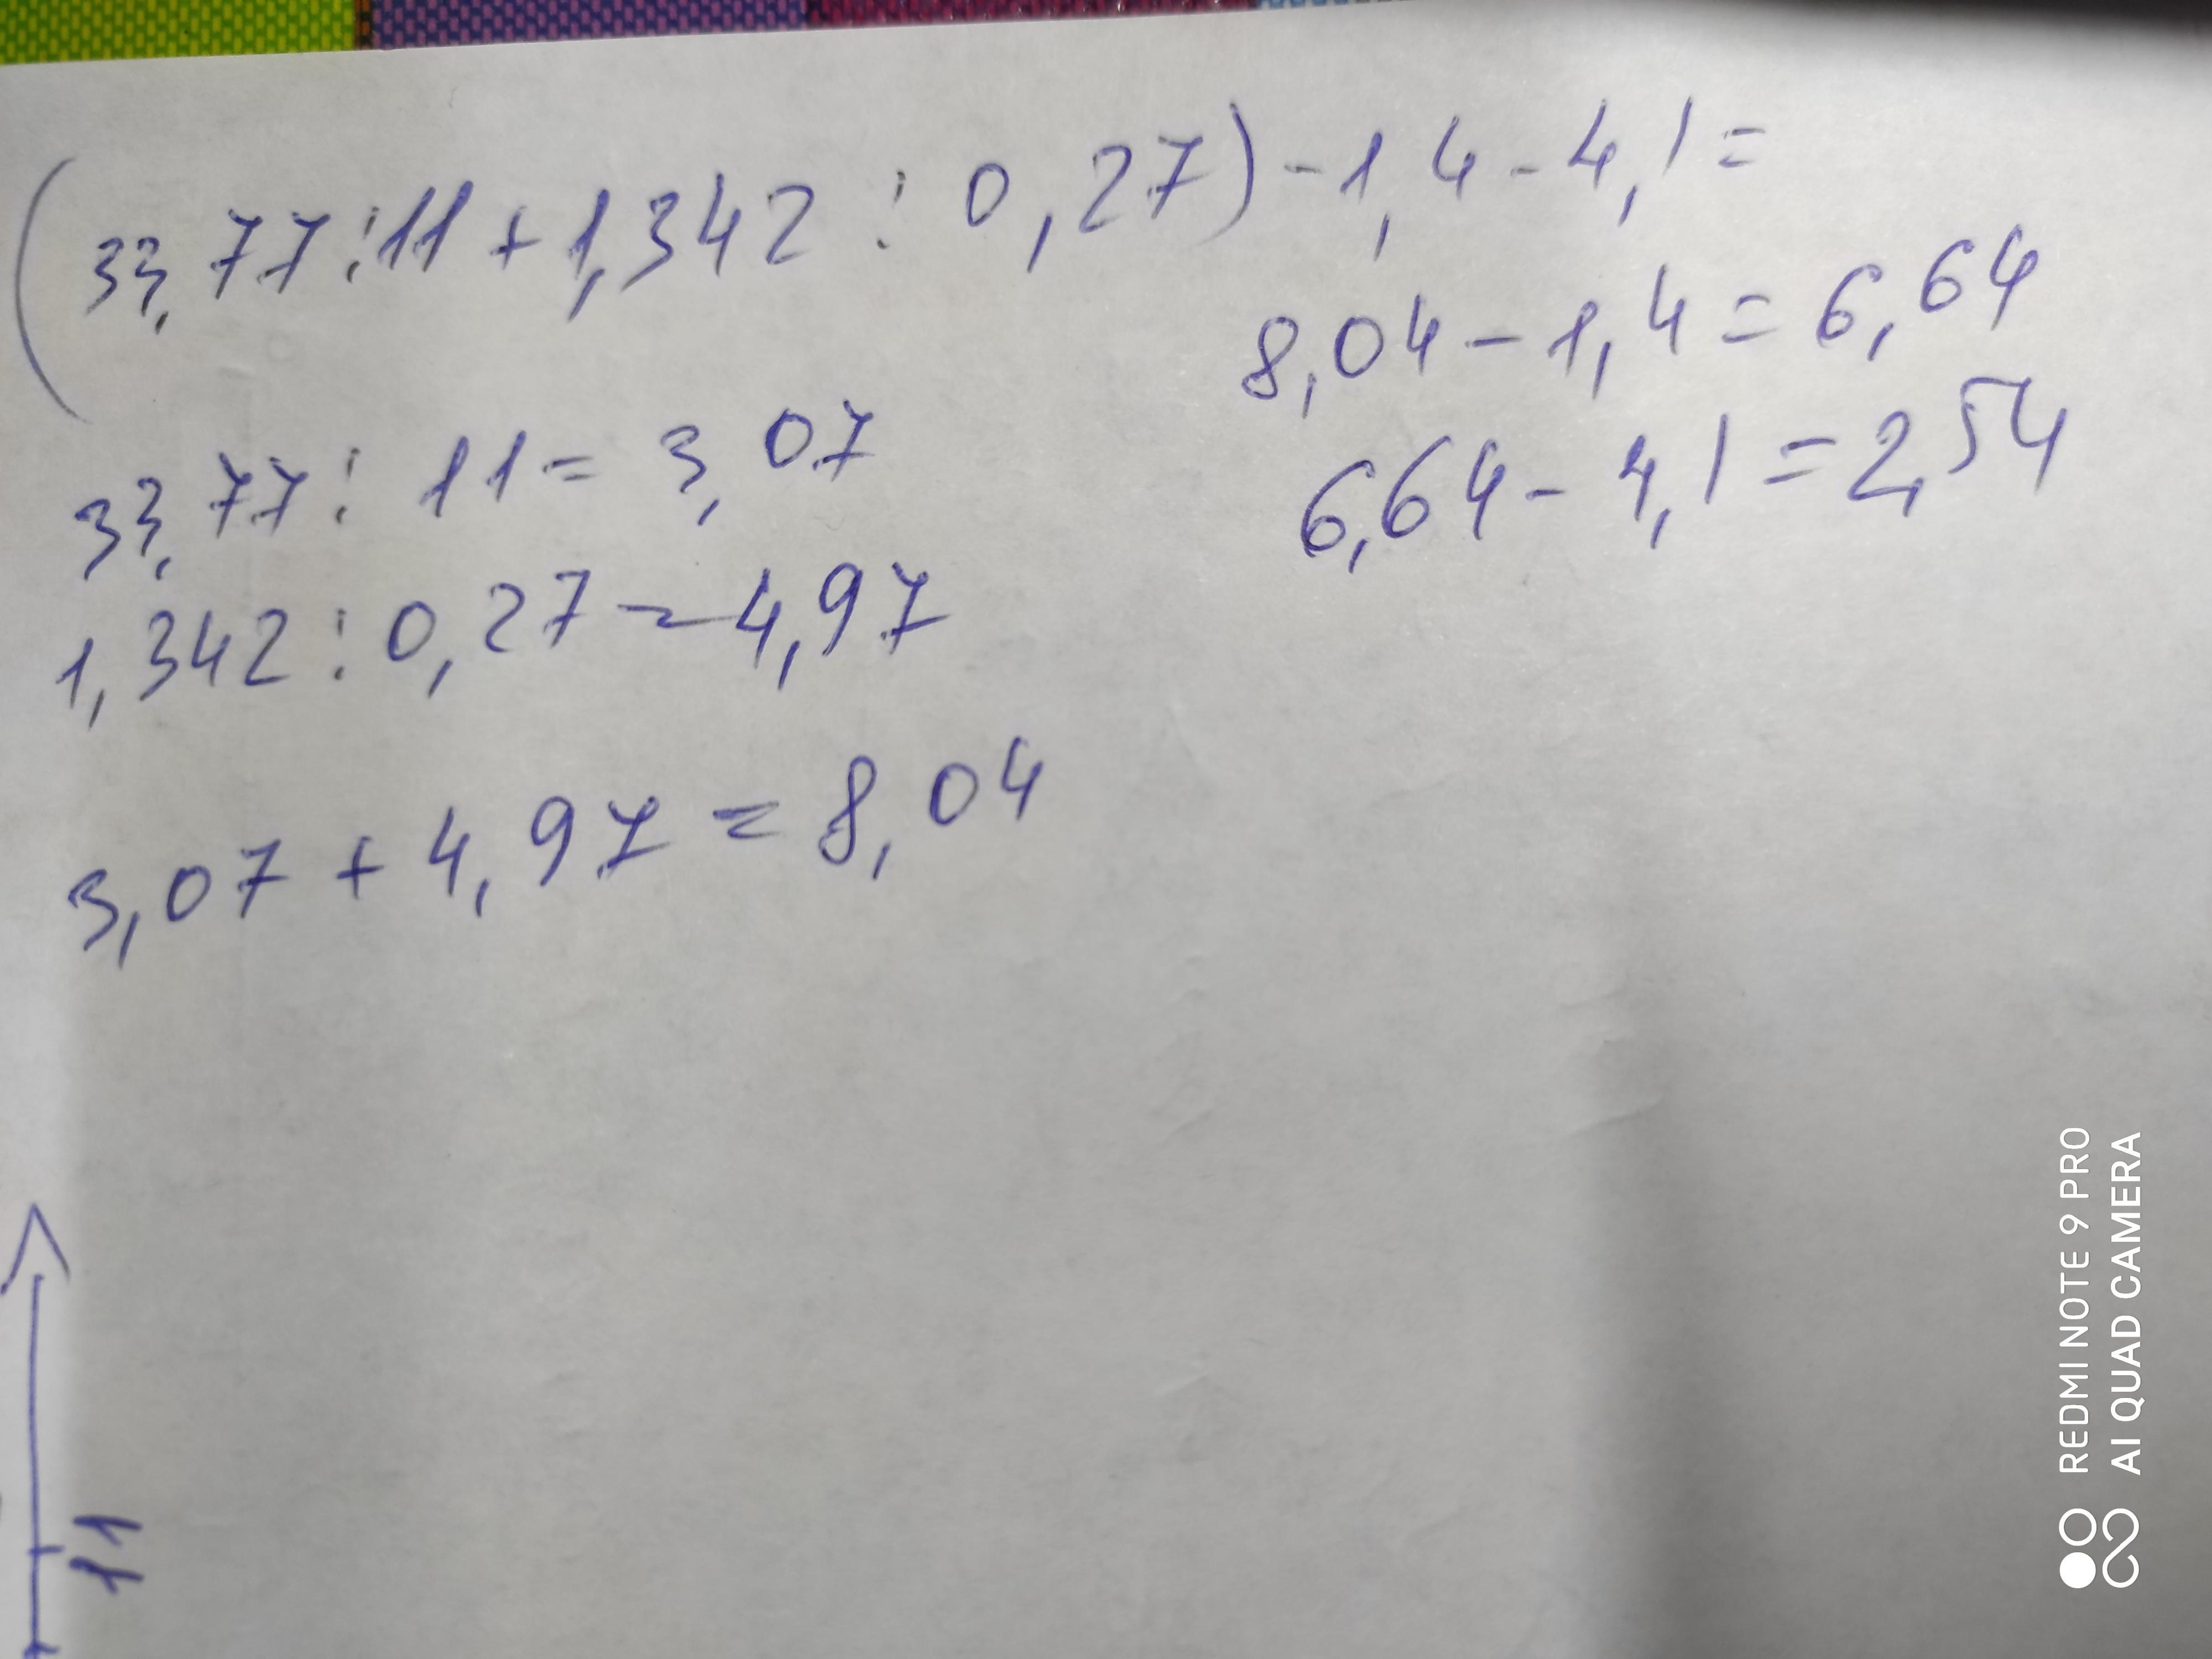 (33,77:11+1,342:0,27)-1,4-4,1=
33,77:11=3,07
1,342:0,27=4,97
3,07+4,97=8,04
8,04-1,4=6,64
6,64-4,1=2,54
11
REDMI NOTE 9 PRO
AI QUAD CAMERA